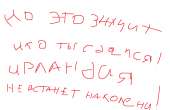 но это значит
что ты сдался!
ирландия
не встанет на колени!